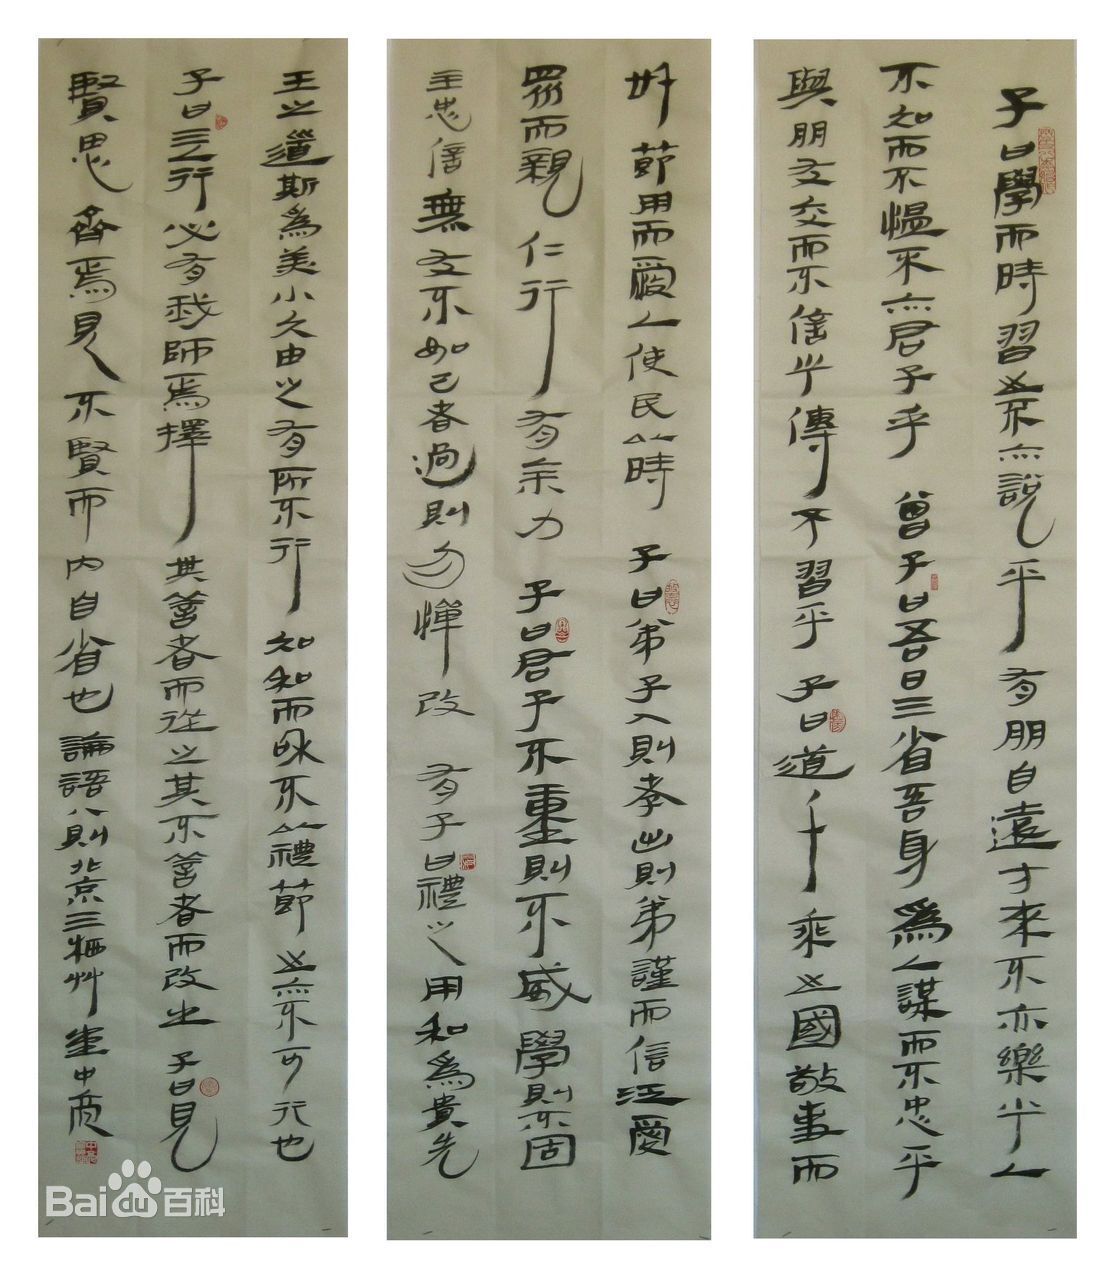 子曰學而時習之不亦說乎有朋自遠方來不亦樂乎人
不知而不慍不亦君子乎 曾子曰吾日三省吾身爲人謀而不忠乎
與朋友交而不信乎傳不習乎 子曰道千乘之國敬事而
節用而愛人使民以時 子曰弟子入則孝出則弟謹而信愛
眾而親仁行有余力 子曰君子不重則不威學則不固
主忠信無友不如己者過則勿憚改 有子曰禮之用和爲貴先
王之道斯爲美小大由之有所不行知和而和不以禮節之亦不可行也
子曰三人行必有我師焉擇其善者而從之其不善者而改之 子曰見
賢思齊焉見不賢而内自省也 論語八則北京三栖艸堂中
Baidu百科